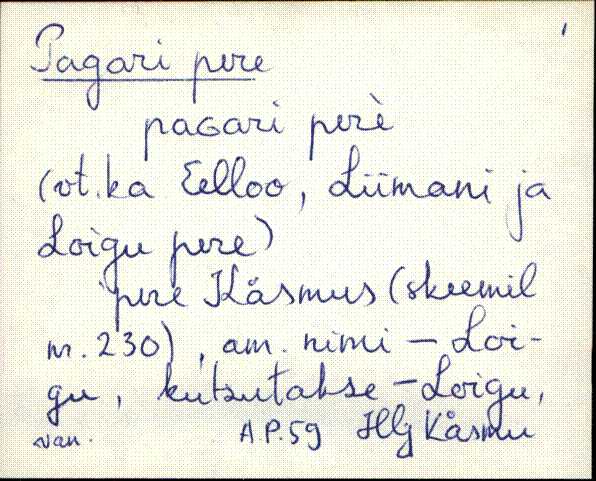 Pagari pere
paGari perè
(vt. ka Eelloo, Liimani ja
Loigu pere)
pere Kåsmus (skeemil
nr. 230), am. nimi – Loi-
gu, kutsutakse – Loigu,
van. A.P.59 Hlj Kåsmu